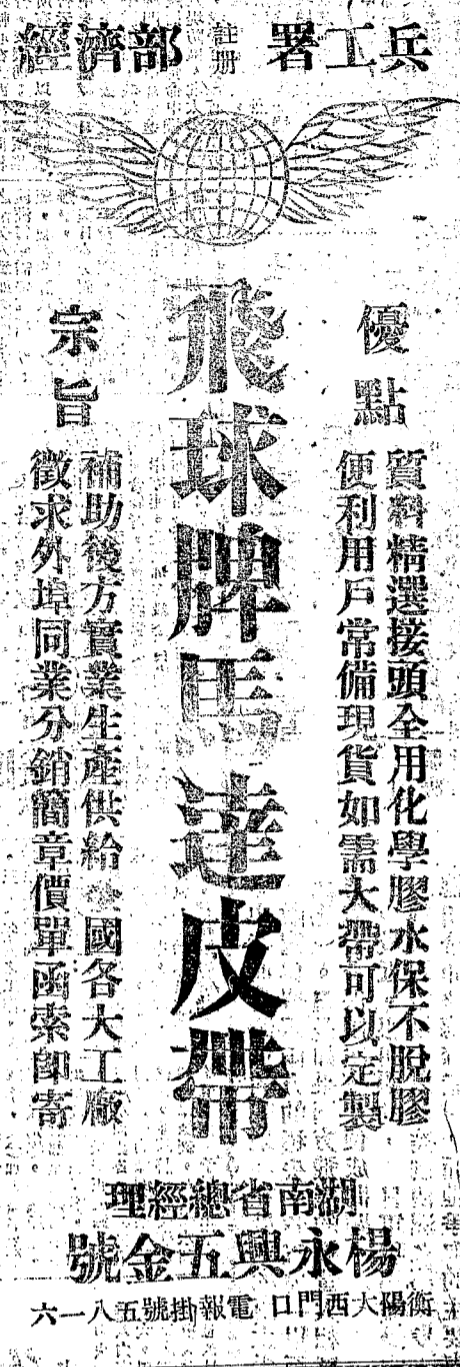 兵工署
註册
經濟部
優點
質料精選接頭全用化學膠水保不脫膠
便利用戶常備現貨如需大帶可以定製
飛球牌馬達皮帶
宗旨
補助後方實業生產供給全國各大工廠
徵求外埠同業分銷簡章價單函索即寄
湖南省總經理
楊永興五金號
衡陽大西門口 電報掛號五八一六